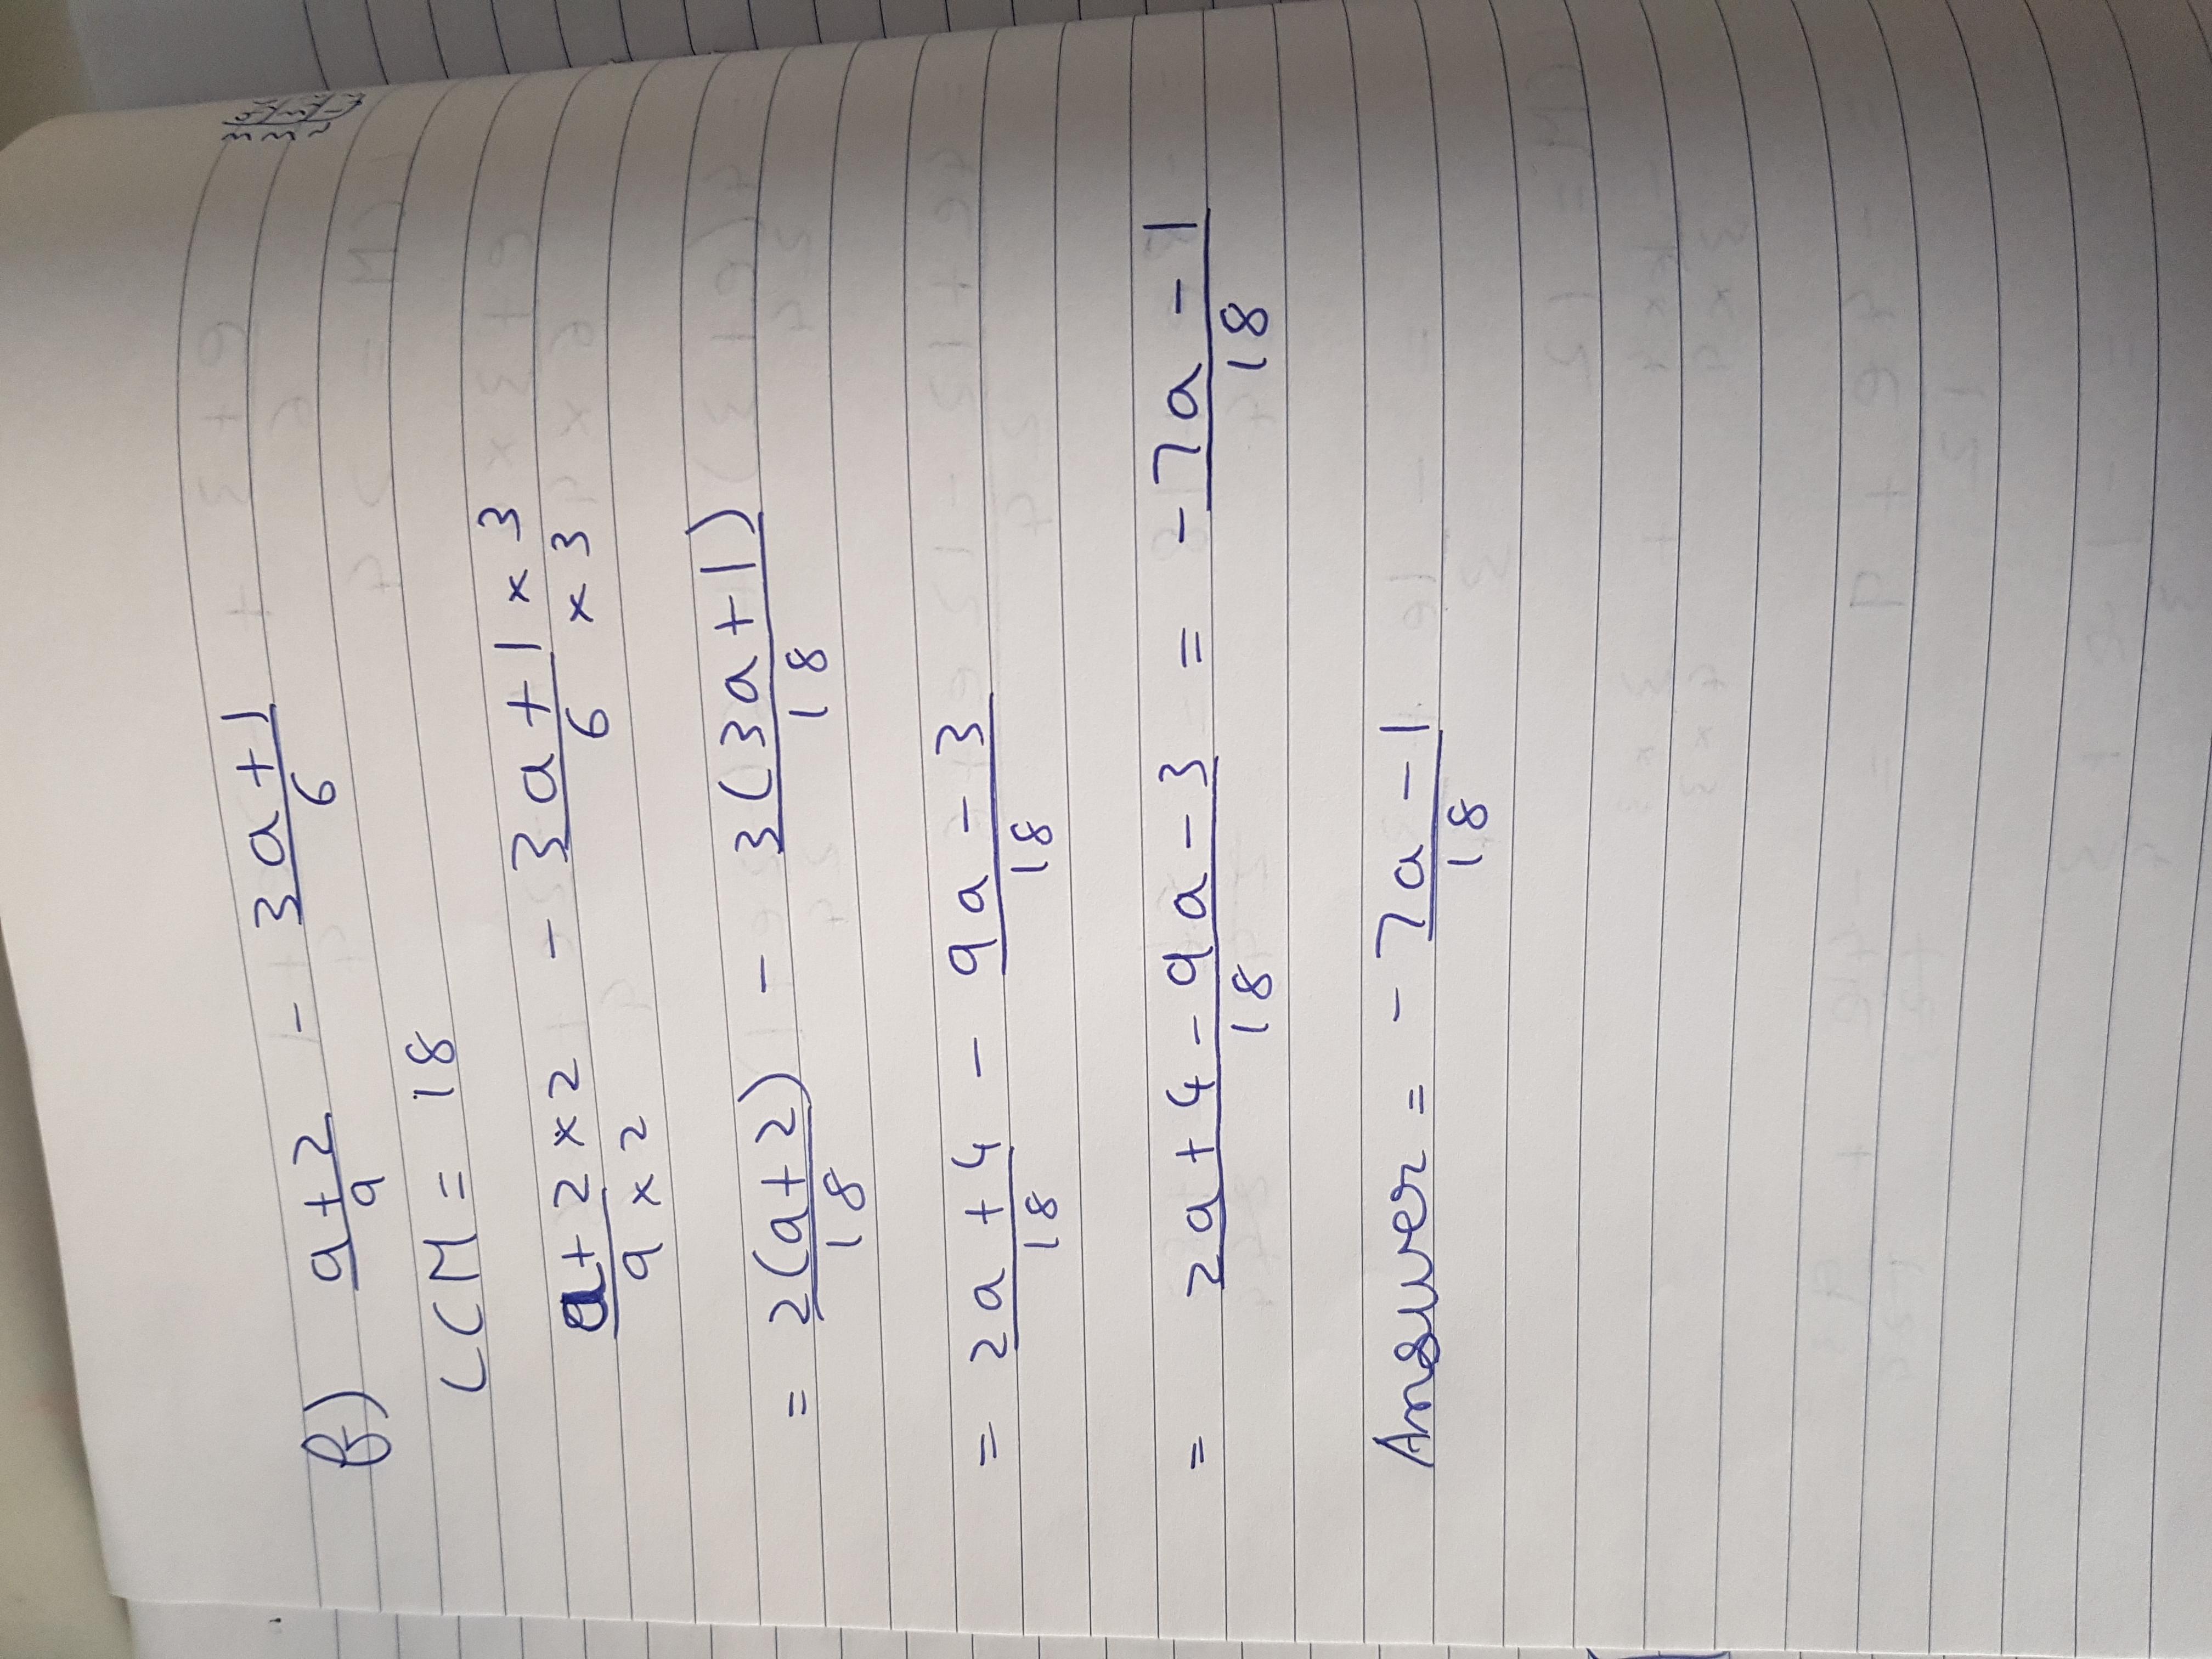 b) a+2/9 - 3a+1/6
LCM = 18
a+2×2/9×2 - 3a+1×3/6×3
= 2(a+2)/18 - 3(3a+1)/18
= 2a+4/18 - 9a-3/18
= 2a+4-9a-3/18 = -7a-1/18
Answer = -7a-1/18